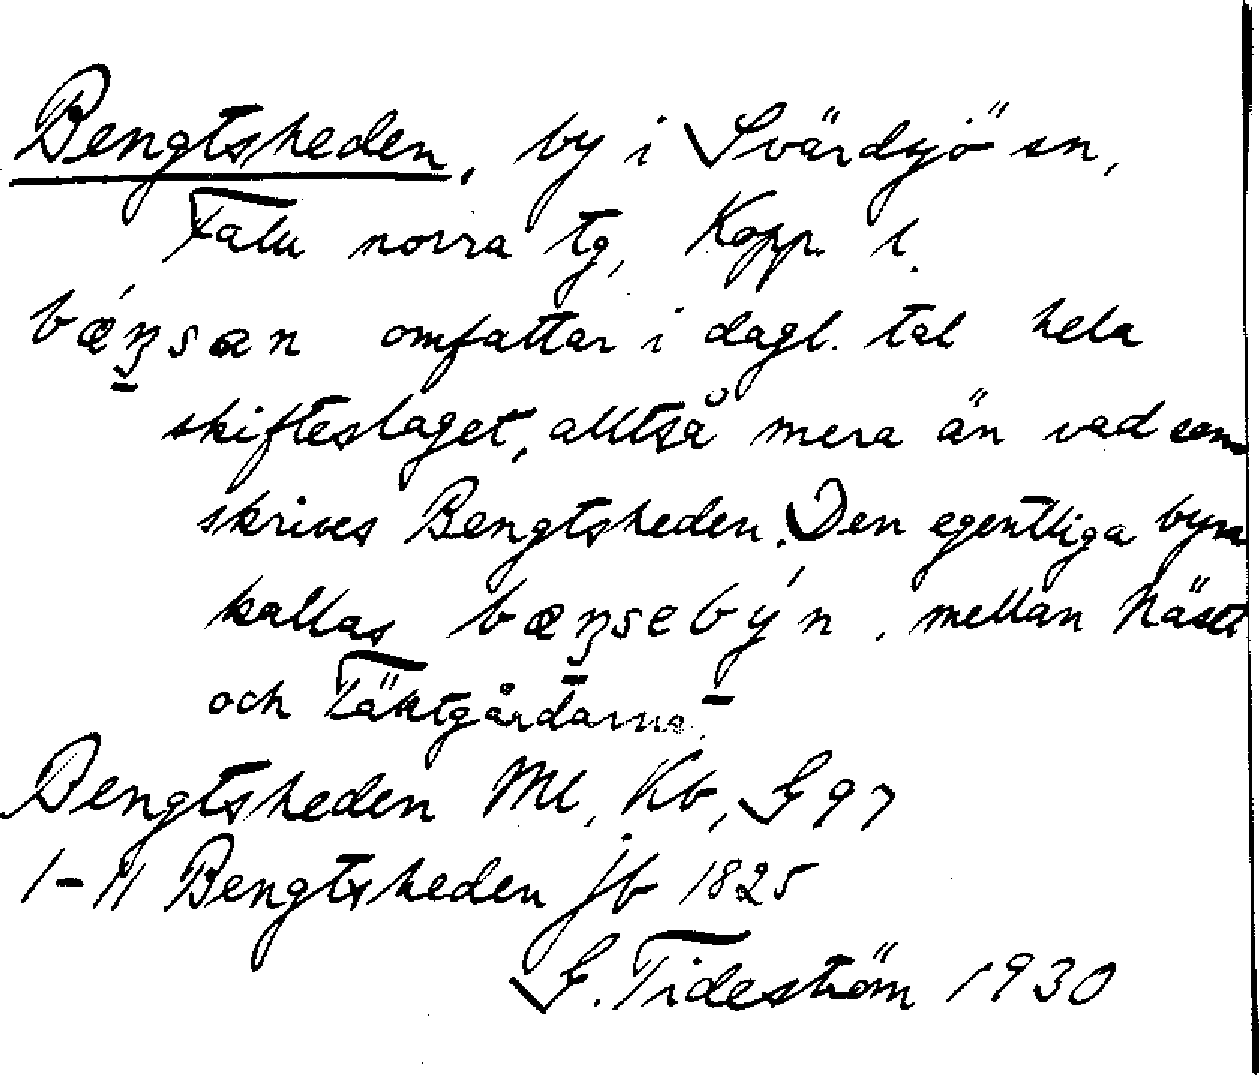 Bengtsheden, by i Svärdsjö sn,
Falu norra tg, Kopp. l.
omfattar i dagl. tal hela
skifteslaget, alltså mera än vad som
skrives Bengtsheden. Den egentliga byn
kallas mellan
och Täktgårdarna.
Bengtsheden Ml, Kb, G 97
1-11 Bengtsheden jb 1825
G. Tideström 1930